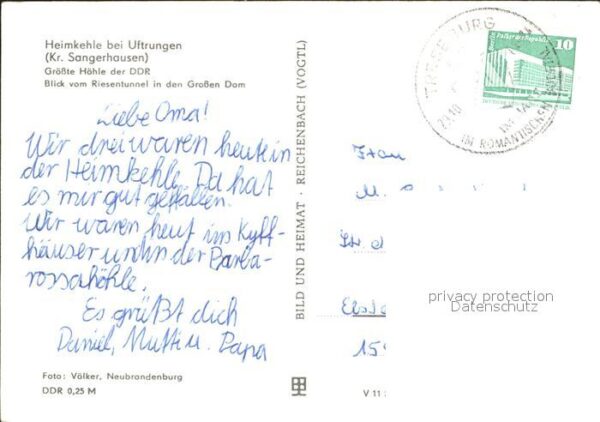 Heimkehle bei Uftrungen
(Kr. Sangerhausen)
Größte Höhle der DDR
Blick vom Riesentunnel in den Großen Dom
Liebe Oma!
Wir drei waren heute in
der Heimkehle. Da hat
es mir gut gefallen.
Wir waren heut im Kyff-
häuser und in der Barba-
rossahöhle.
Es grüßt dich
Daniel, Mutti u. Papa
Foto: Völker, Neubrandenburg
DDR 0,25 M
BILD UND HEIMAT · REICHENBACH (VOGTL)
V 11
IM ROMANTISCHEN
10
Frau
M.
privacy protection
Datenschutz